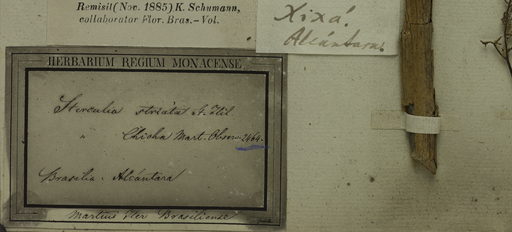 Remisit (Nov. 1885) K. Schumann,
collaborator Flor. Bras.-Vol.
Xixá.
Alcántara.
HERBARIUM REGIUM MONACENSE
Sterculia striata St. Hil
" Chicha Mart. Obsn. 2464.
Brasilia. Alcántara
Martius Iter Brasiliense